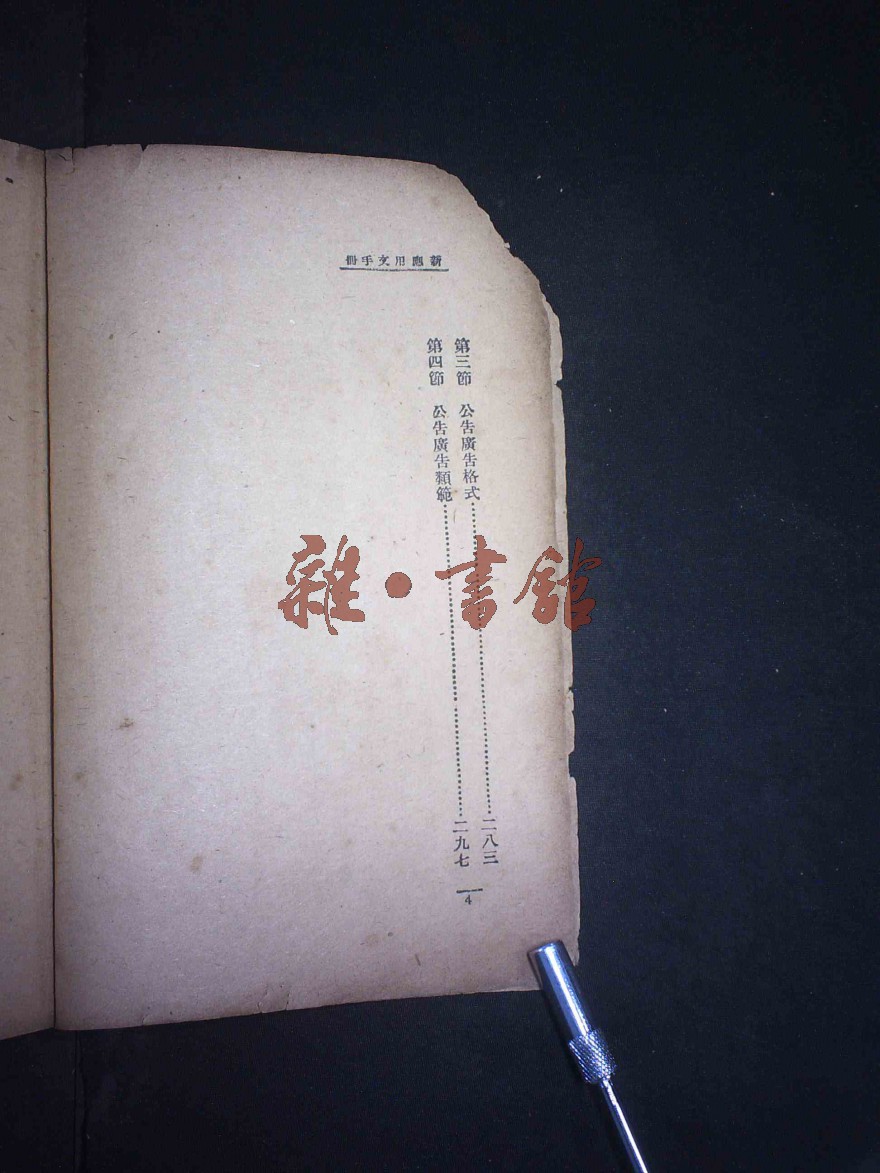 新應用文手冊
第三節 公告廣告格式……二八三
第四節 公告廣告類範……二九七
4
雜·書館